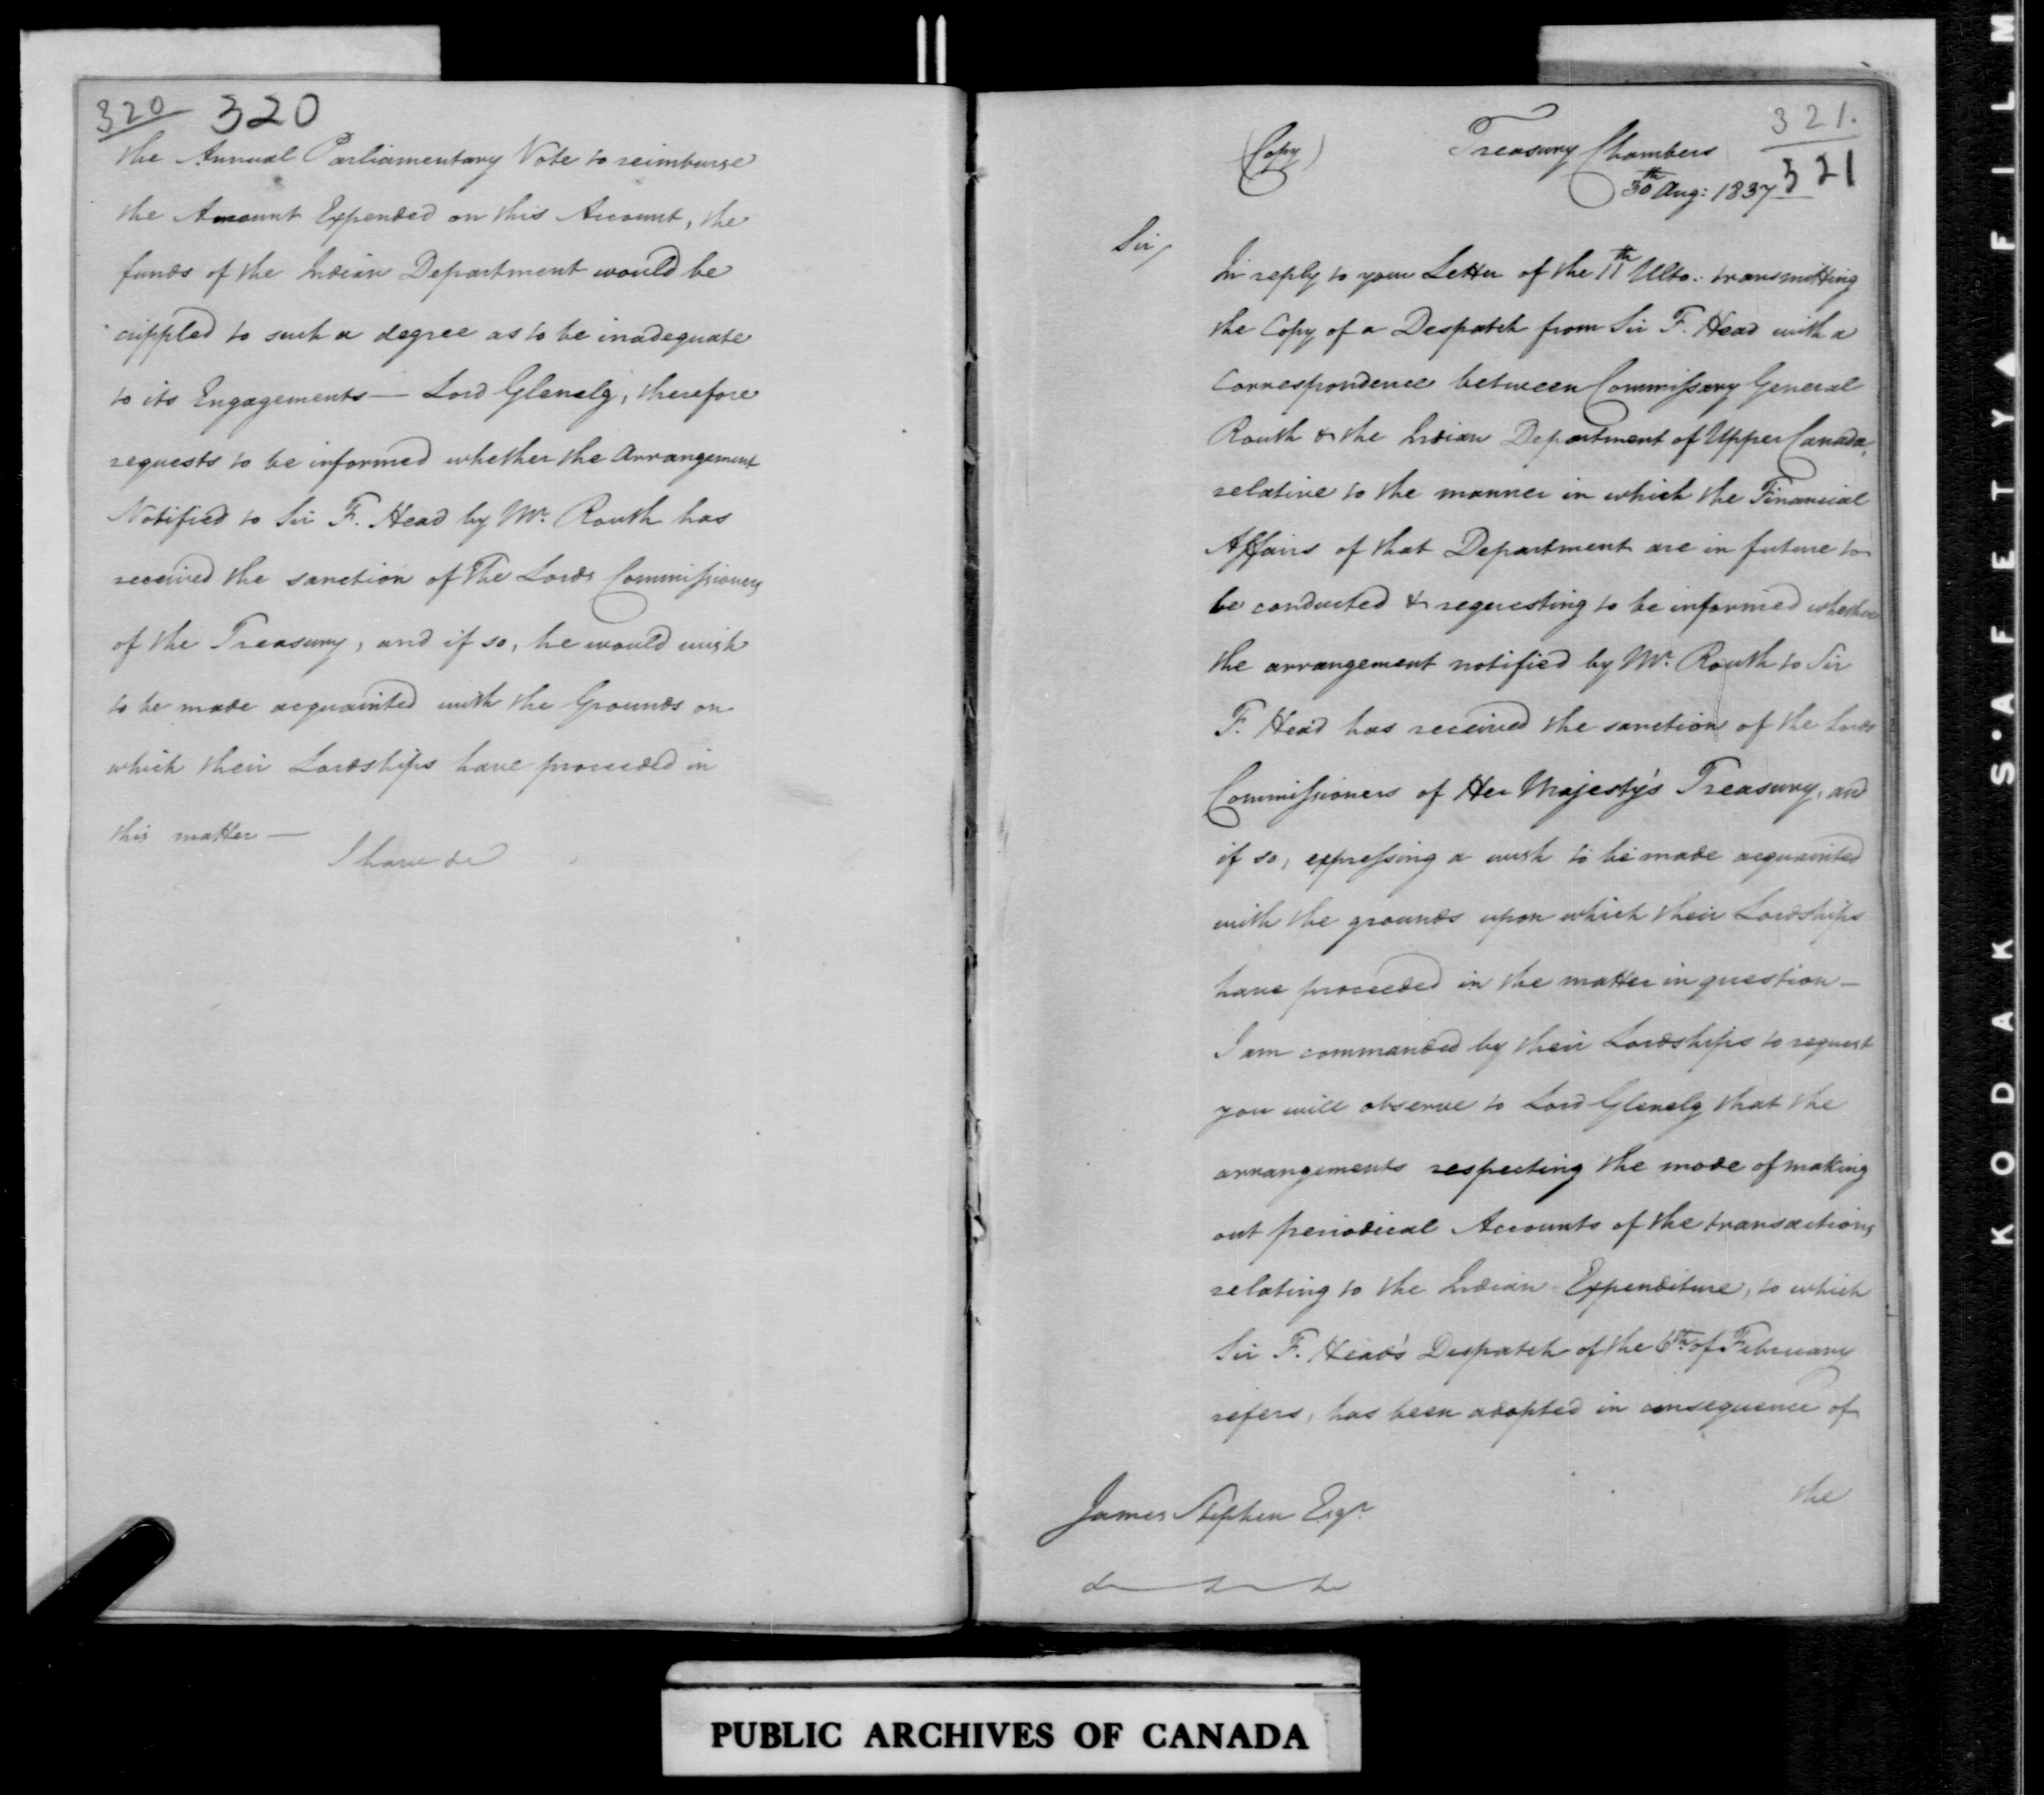 320 320
the Annual Parliamentary Vote to reimburse
the Amount Expended on this Account, the
funds of the Indian Department would be
crippled to such a degree as to be inadequate
to its Engagements — Lord Glenelg, therefore
requests to be informed whether the Arrangement
Notified to Sir F. Head by Mr. Routh has
received the sanction of The Lords Commissioners
of the Treasury, and if so, he would wish
to be made acquainted with the Grounds on
which their Lordships have proceeded in
this matter —
I have &c
321.
321
(Copy) Treasury Chambers
30th Aug: 1837
Sir,
In reply to your Letter of the 11th Ulto: transmitting
the Copy of a Despatch from Sir F. Head with a
Correspondence between Commissary General
Routh & the Indian Department of Upper Canada,
relative to the manner in which the Financial
Affairs of that Department are in future to
be conducted & requesting to be informed whether
the arrangement notified by Mr. Routh to Sir
F. Head has received the sanction of the Lords
Commissioners of Her Majesty's Treasury, and
if so, expressing a wish to be made acquainted
with the grounds upon which their Lordships
have proceeded in the matter in question —
I am commanded by their Lordships to request
you will observe to Lord Glenelg that the
arrangements respecting the mode of making
out periodical Accounts of the transactions
relating to the Indian Expenditure, to which
Sir F. Head's Despatch of the 6th of February
refers, has been adopted in consequence of
the
James Stephen Esqr.
&c &c &c
PUBLIC ARCHIVES OF CANADA
KODAK S·A·F·E·T·Y ♦ FILM